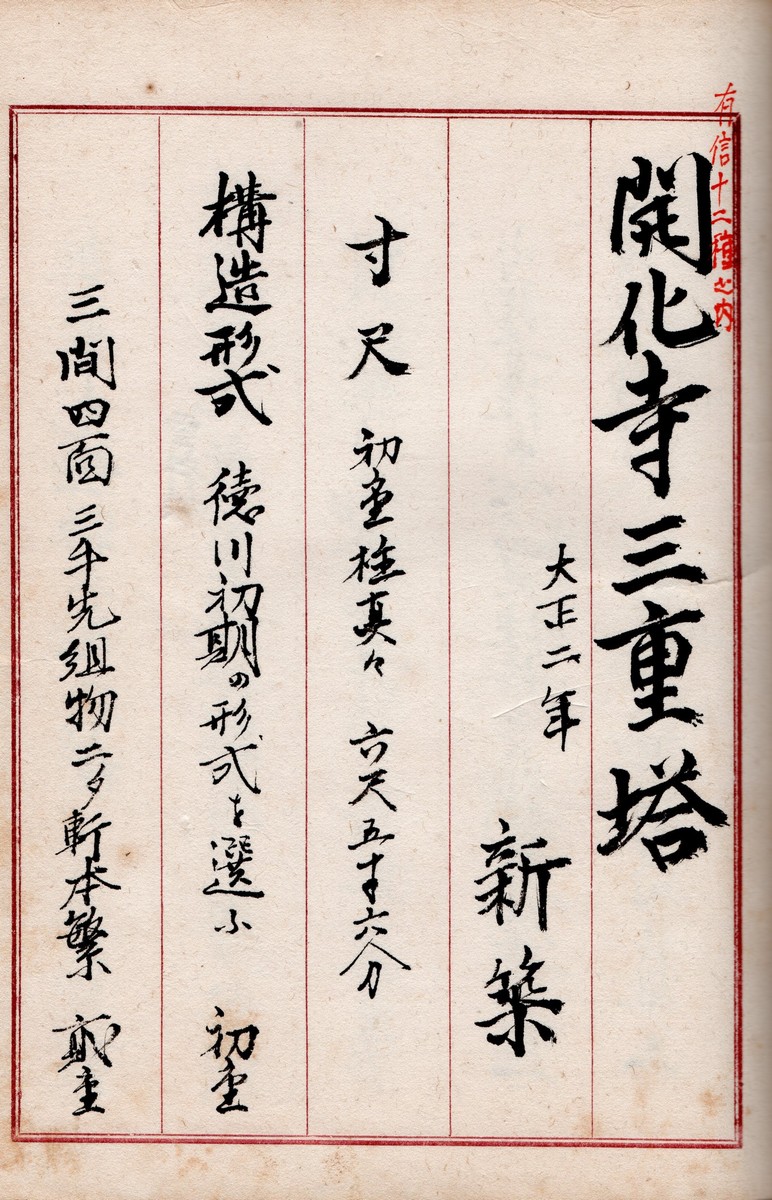 有信十二種之内
開化寺三重塔
大正二年
新築
寸尺 初重柱真々 六尺五寸六分
構造形式 徳川初期の形式を選ふ 初重
三間四面三手先組物二タ軒本繁 貳重